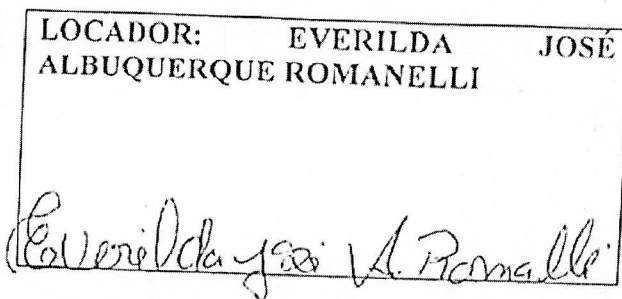 LOCADOR: EVERILDA JOSÉ
ALBUQUERQUE ROMANELLI
Everilda José A. Romanelli